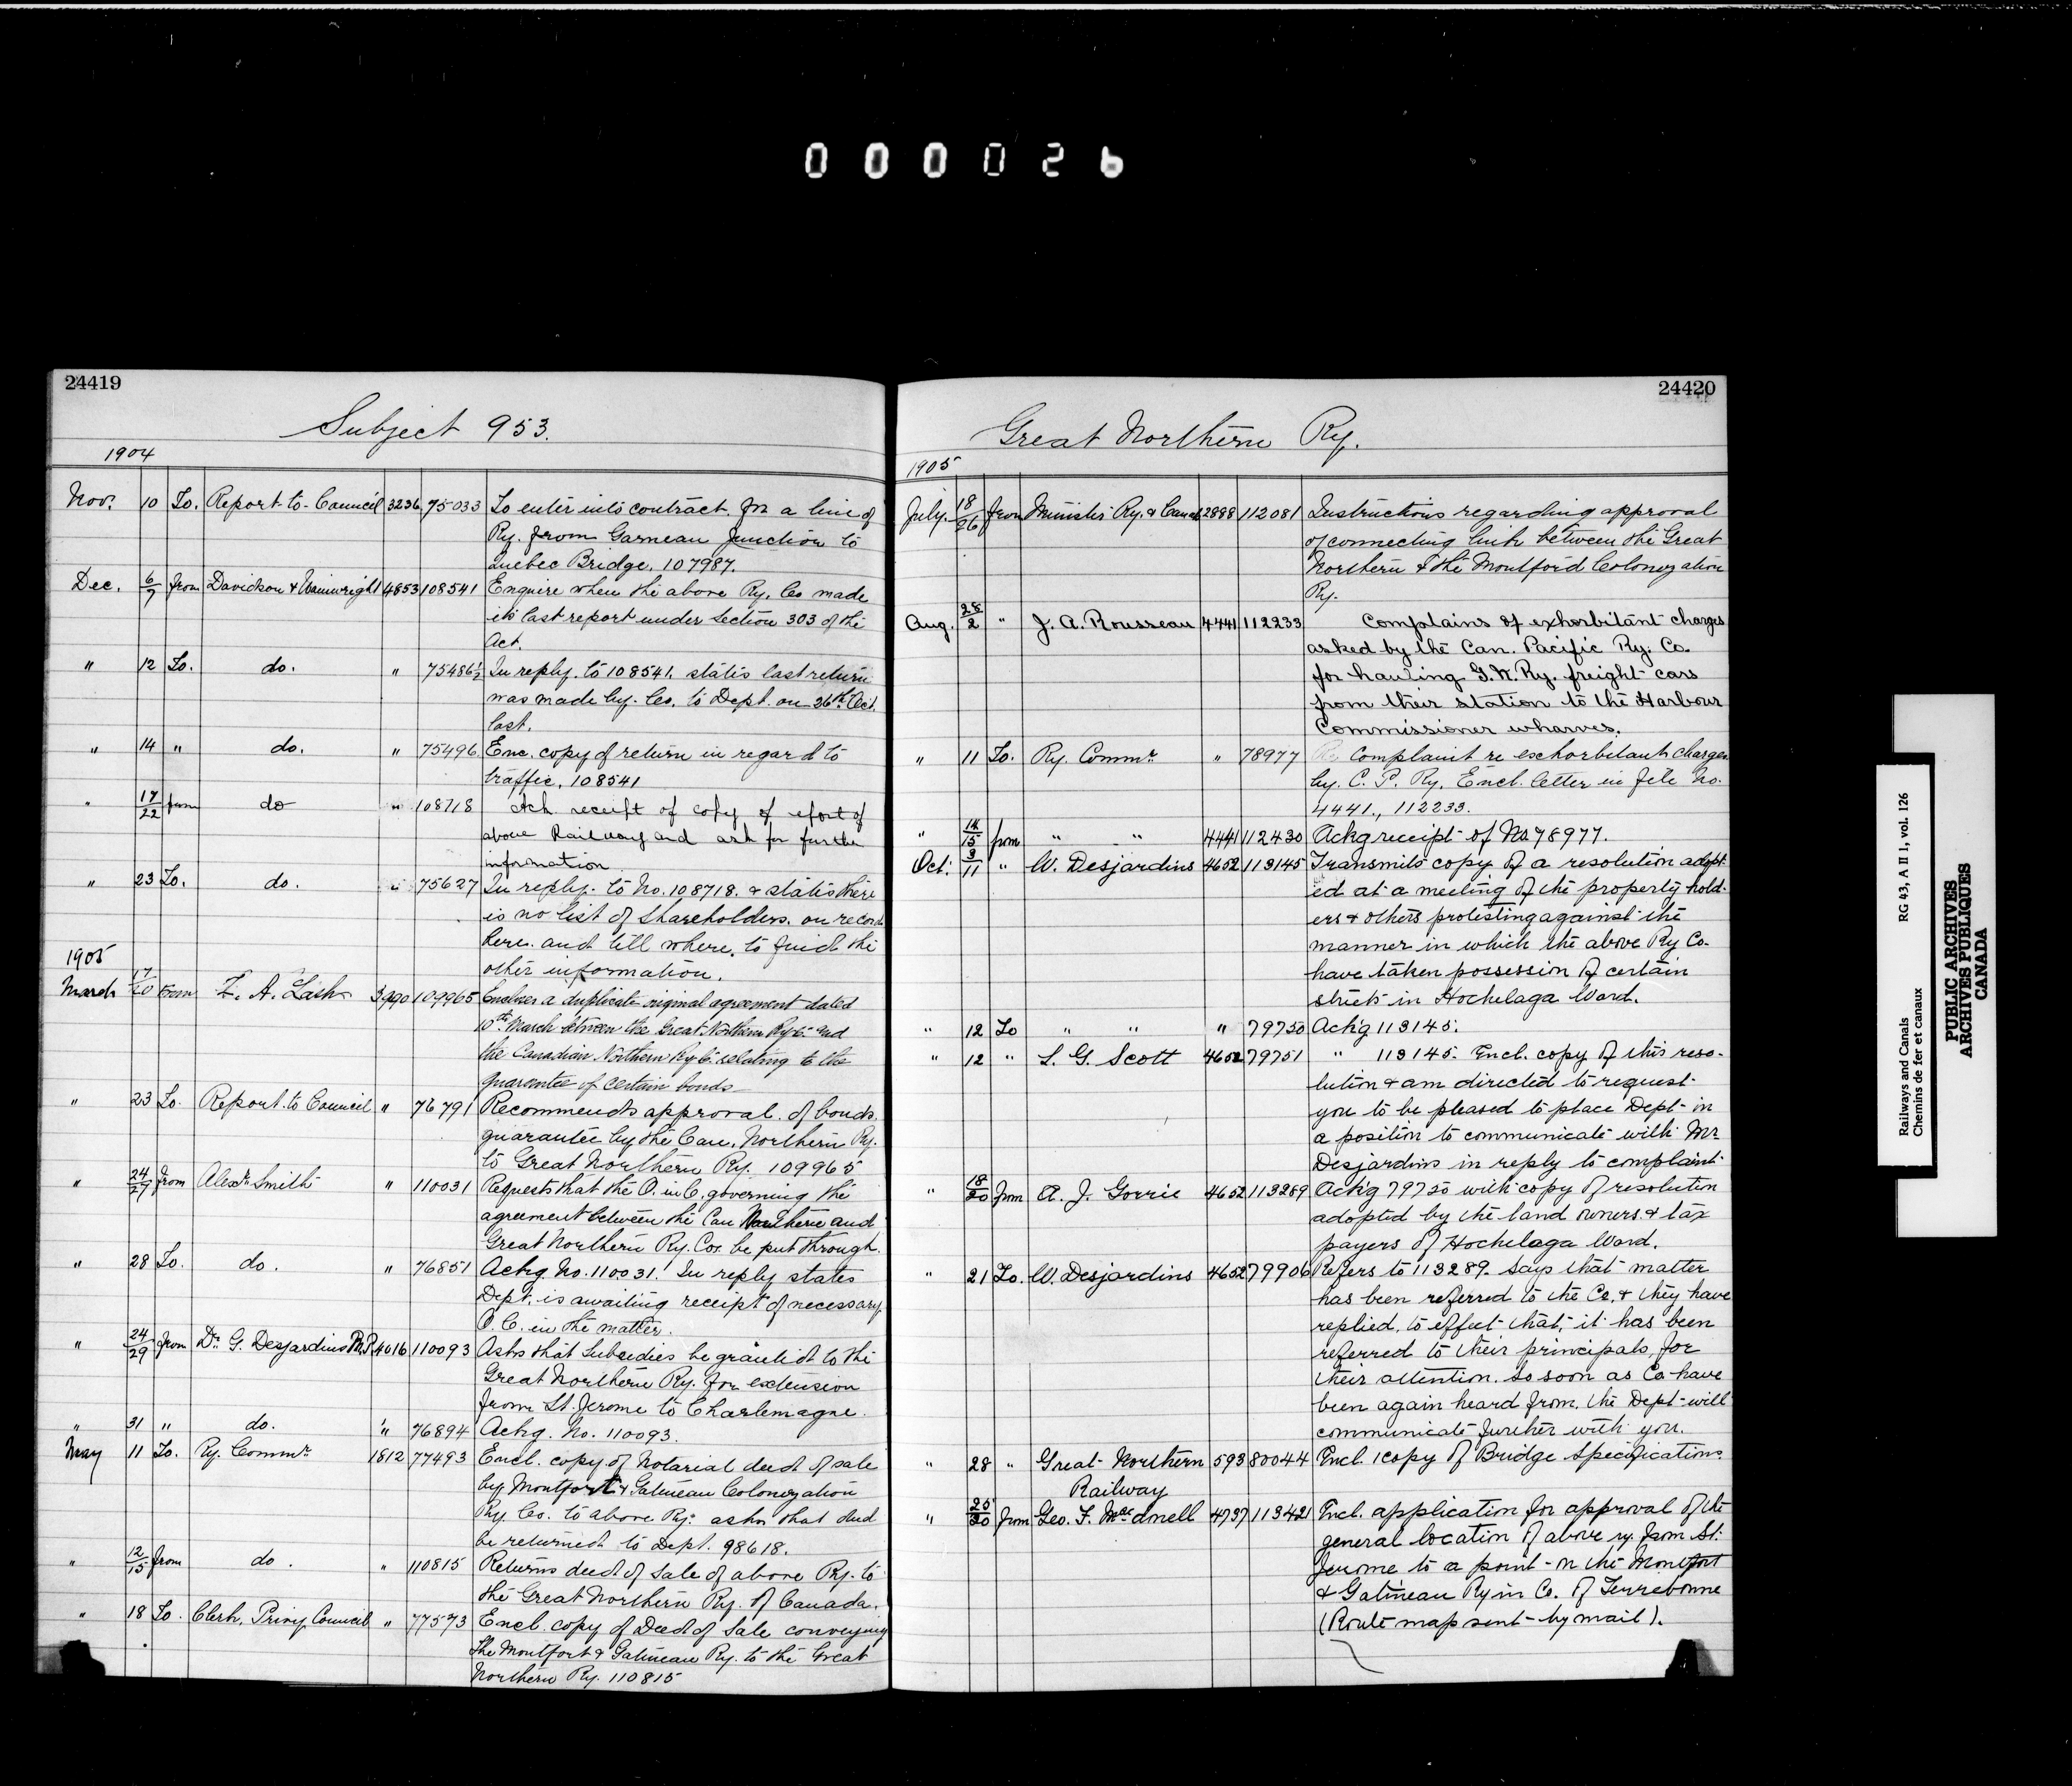 000026
24419
Subject 953.
1904
Nov. 10 To. Report to Council 3236 75033 To enter into contract for a line of
Ry. from Garneau Junction to
Quebec Bridge. 107987.
Dec. 6/7 from Davidson & Wainwright 4853 108541 Enquire when the above Ry. Co made
its last report under Section 303 of the
Act.
" 12 To. do. " 75486½ In reply to 108541. states last return
was made by Co. to Dept. on 26th Oct.
last.
" 14 " do. " 75496 Enc. copy of return in regard to
traffic. 108541
" 17/22 from do " 108718 Ack receipt of copy of report of
above Railway and ask for further
information
" 23 To. do. " 75627 In reply to No. 108718. & states there
is no list of Shareholders. on record
here. and tell where. to find the
other information.
1905
March 17/20 From Z. A. Lash 3990 109965 Encloses a duplicate original agreement dated
10th March between the Great Northern Ry Co and
the Canadian Northern Ry Co relating to the
guarantee of certain bonds
" 23 To. Report to Council " 76791 Recommends approval of bonds
guarantee by the Can. Northern Ry.
to Great Northern Ry. 109965
" 24/27 from Alexr Smith " 110031 Requests that the O. in C. governing the
agreement between the Can Northern and
Great Northern Ry. Cos. be put through.
" 28 To. do. " 76851 Ackg. No. 110031. In reply states
Dept. is awaiting receipt of necessary
O. C. in the matter.
" 24/29 from Dr. G. Desjardins M.P. 4016 110093 Asks that Subsidies be granted to the
Great Northern Ry. for extension
from St. Jerome to Charlemagne.
" 31 " do. " 76894 Ackg. No. 110093.
May 11 To. Ry. Commr. 1812 77493 Encl. copy of Notarial deed of sale
by Montfort & Gatineau Colonization
Ry Co. to above Ry. asks that deed
be returned to Dept. 98618.
" 12/15 from do. " 110815 Returns deed of Sale of above Ry. to
the Great Northern Ry. of Canada.
" 18 To. Clerk, Privy Council " 77573 Encl. copy of Deed of Sale conveying
The Montfort & Gatineau Ry. to the Great
Northern Ry. 110815
24420
Great Northern Ry.
1905
July. 18/26 from Minister Ry. & Canals 2888 112081 Instructions regarding approval
of connecting link between the Great
Northern & the Montford Colonization
Ry.
Aug. 28/2 " J. A. Rousseau 4441 112233 Complains of exhorbitant charges
asked by the Can. Pacific Ry. Co.
for hauling G.N. Ry. freight cars
from their station to the Harbour
Commissioner wharves.
" 11 To. Ry. Commr. " 78977 Re Complaint re exhorbitant charges
by. C. P. Ry. Encl. letter in file No.
4441., 112233.
" 14/15 from " " 4441 112430 Ackg receipt of No 78977.
Oct. 9/11 " W. Desjardins 4652 113145 Transmits copy of a resolution adopt-
ed at a meeting of the property hold-
ers & others protesting against the
manner in which the above Ry Co.
have taken possession of certain
streets in Hochelaga Ward.
" 12 To " " " 79750 Ack'g 113145.
" 12 " L. G. Scott 4652 79751 " 113145. Encl. copy of this reso-
lution & am directed to request
you to be pleased to place Dept. in
a position to communicate with Mr.
Desjardins in reply to complaint.
" 18/20 from A. J. Gorrie 4652 113289 Ack'g 79750 with copy of resolution
adopted by the land owners. & tax
payers of Hochelaga Ward.
" 21 To. W. Desjardins 4652 79906 Refers to 113289. Says that matter
has been referred to the Co. & they have
replied, to effect that, it has been
referred to their principals, for
their attention. So soon as Co. have
been again heard from, the Dept. will
communicate further with you.
" 28 " Great Northern 593 80044 Encl. 1 copy of Bridge Specifications
Railway
" 25/30 from Geo. F. 4737 113421 Encl. application for approval of the
general location of above ry. from St.
Jerome to a point on the Montfort
& Gatineau Ry in Co. of Terrebonne
(Route map sent by mail).
Railways and Canals RG 43, A II 1, vol. 126
Chemins de fer et canaux
PUBLIC ARCHIVES
ARCHIVES PUBLIQUES
CANADA